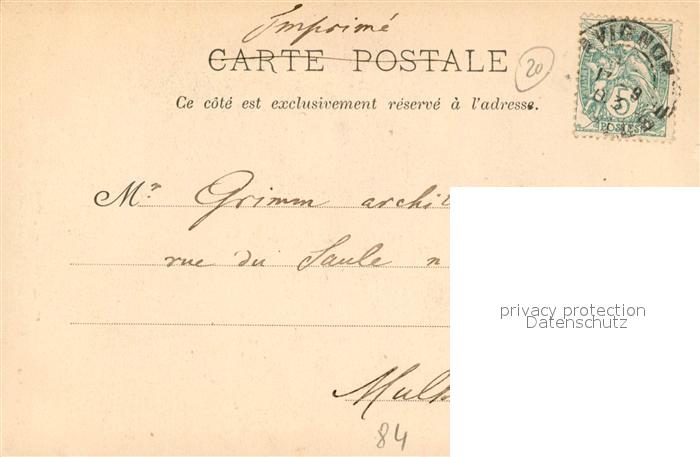 Imprimé
CARTE POSTALE
20
Ce côté est exclusivement réservé à l'adresse.
AVIGNON
5
POSTES
Mr. Grimm archi
rue du Saule n
privacy protection
Datenschutz
Mulh
84